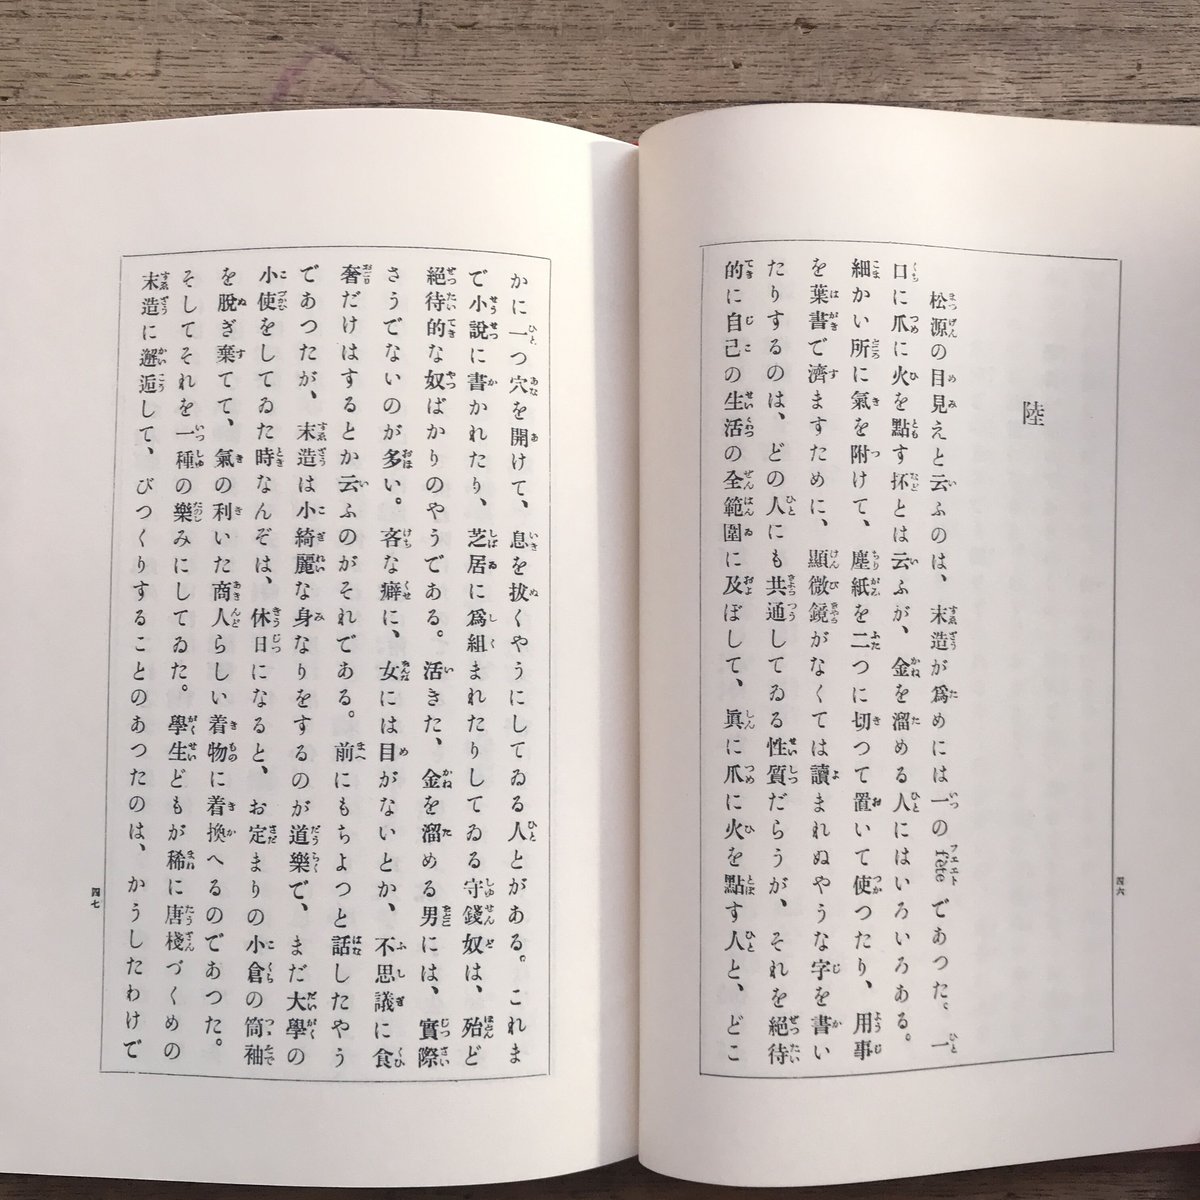 陸
松源の目見えと云ふのは、末造が爲めには一の fête であつた。一
口に爪に火を點す抔とは云ふが、金を溜める人にはいろいろある。
細かい所に氣を附けて、塵紙を二つに切つて置いて使つたり、用事
を葉書で濟ますために、顯微鏡がなくては讀まれぬやうな字を書い
たりするのは、どの人にも共通してゐる性質だらうが、それを絕待
的に自己の生活の全範圍に及ぼして、眞に爪に火を點す人と、どこ
四六
かに一つ穴を開けて、息を拔くやうにしてゐる人とがある。これま
で小說に書かれたり、芝居に爲組まれたりしてゐる守錢奴は、殆ど
絕待的な奴ばかりのやうである。活きた、金を溜める男には、實際
さうでないのが多い。吝な癖に、女には目がないとか、不思議に食
奢だけはするとか云ふのがそれである。前にもちよつと話したやう
であつたが、末造は小綺麗な身なりをするのが道樂で、まだ大學の
小使をしてゐた時なんぞは、休日になると、お定まりの小倉の筒袖
を脫ぎ棄てて、氣の利いた商人らしい着物に着換へるのであつた。
そしてそれを一種の樂みにしてゐた。學生どもが稀に唐棧づくめの
末造に邂逅して、びつくりすることのあつたのは、かうしたわけで
四七